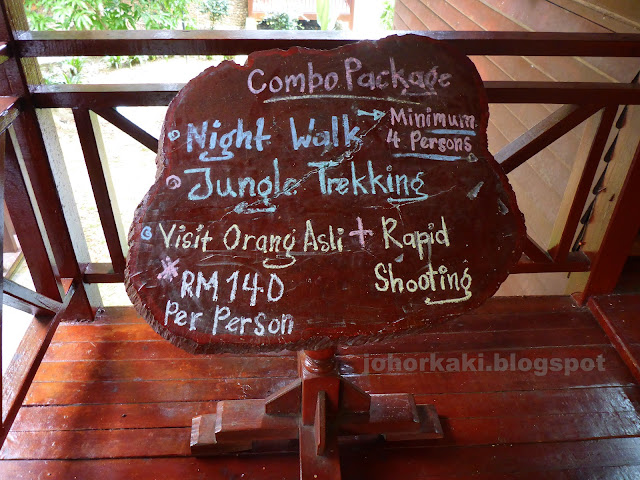 Combo Package
Night Walk → Minimum
4 Persons
Jungle Trekking
Visit Orang Asli + Rapid
Shooting
* RM 140
Per Person
johorkaki.blogspot